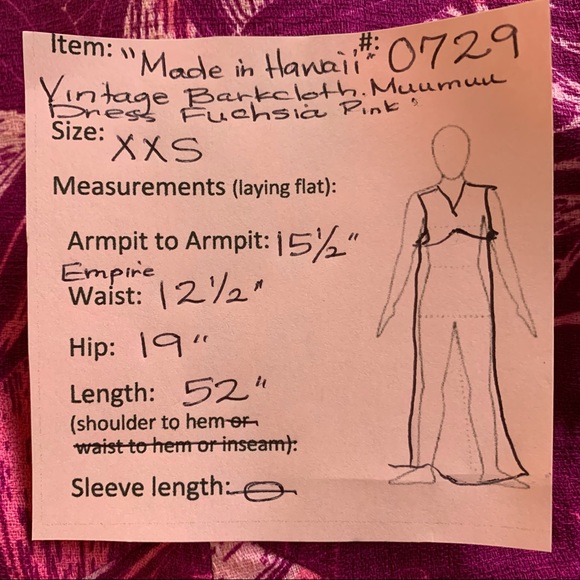 Item: "Made in Hawaii" #: 0729
Vintage Barkcloth Muumuu
Dress Fuchsia Pink
Size: XXS
Measurements (laying flat):
Armpit to Armpit: 15½"
Empire
Waist: 12½"
Hip: 19"
Length: 52"
(shoulder to hem or
waist to hem or inseam):
Sleeve length: 0